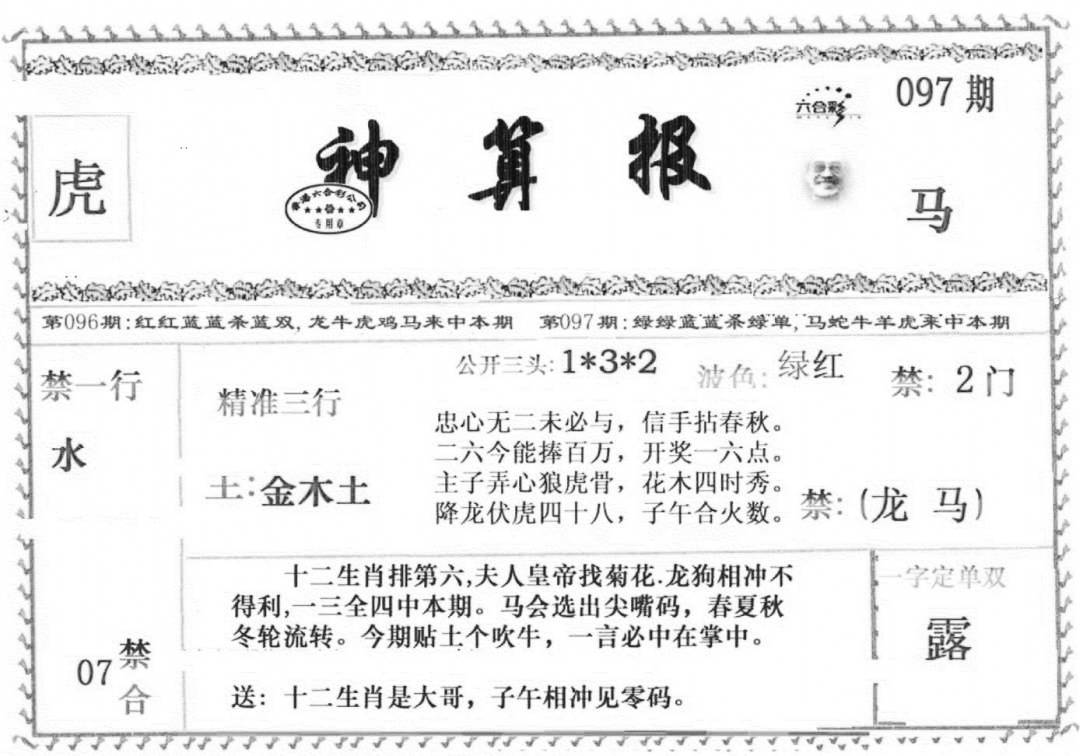 六合彩
097期
虎
神算报
香港六合彩公司
专用章
马
第096期:红红蓝蓝杀蓝双,龙牛虎鸡马来中本期 第097期:绿绿蓝蓝杀绿单,马蛇牛羊虎来中本期
禁一行
水
精准三行
土:金木土
公开三头:1*3*2
波色:绿红
禁:2门
忠心无二未必与，信手拈春秋。
二六今能捧百万，开奖一六点。
主子弄心狼虎骨，花木四时秀。
降龙伏虎四十八，子午合火数。
禁:(龙 马)
07禁合
十二生肖排第六,夫人皇帝找菊花.龙狗相冲不
得利,一三全四中本期。马会选出尖嘴码，春夏秋
冬轮流转。今期贴土个吹牛，一言必中在掌中。
送：十二生肖是大哥，子午相冲见零码。
一字定单双
露